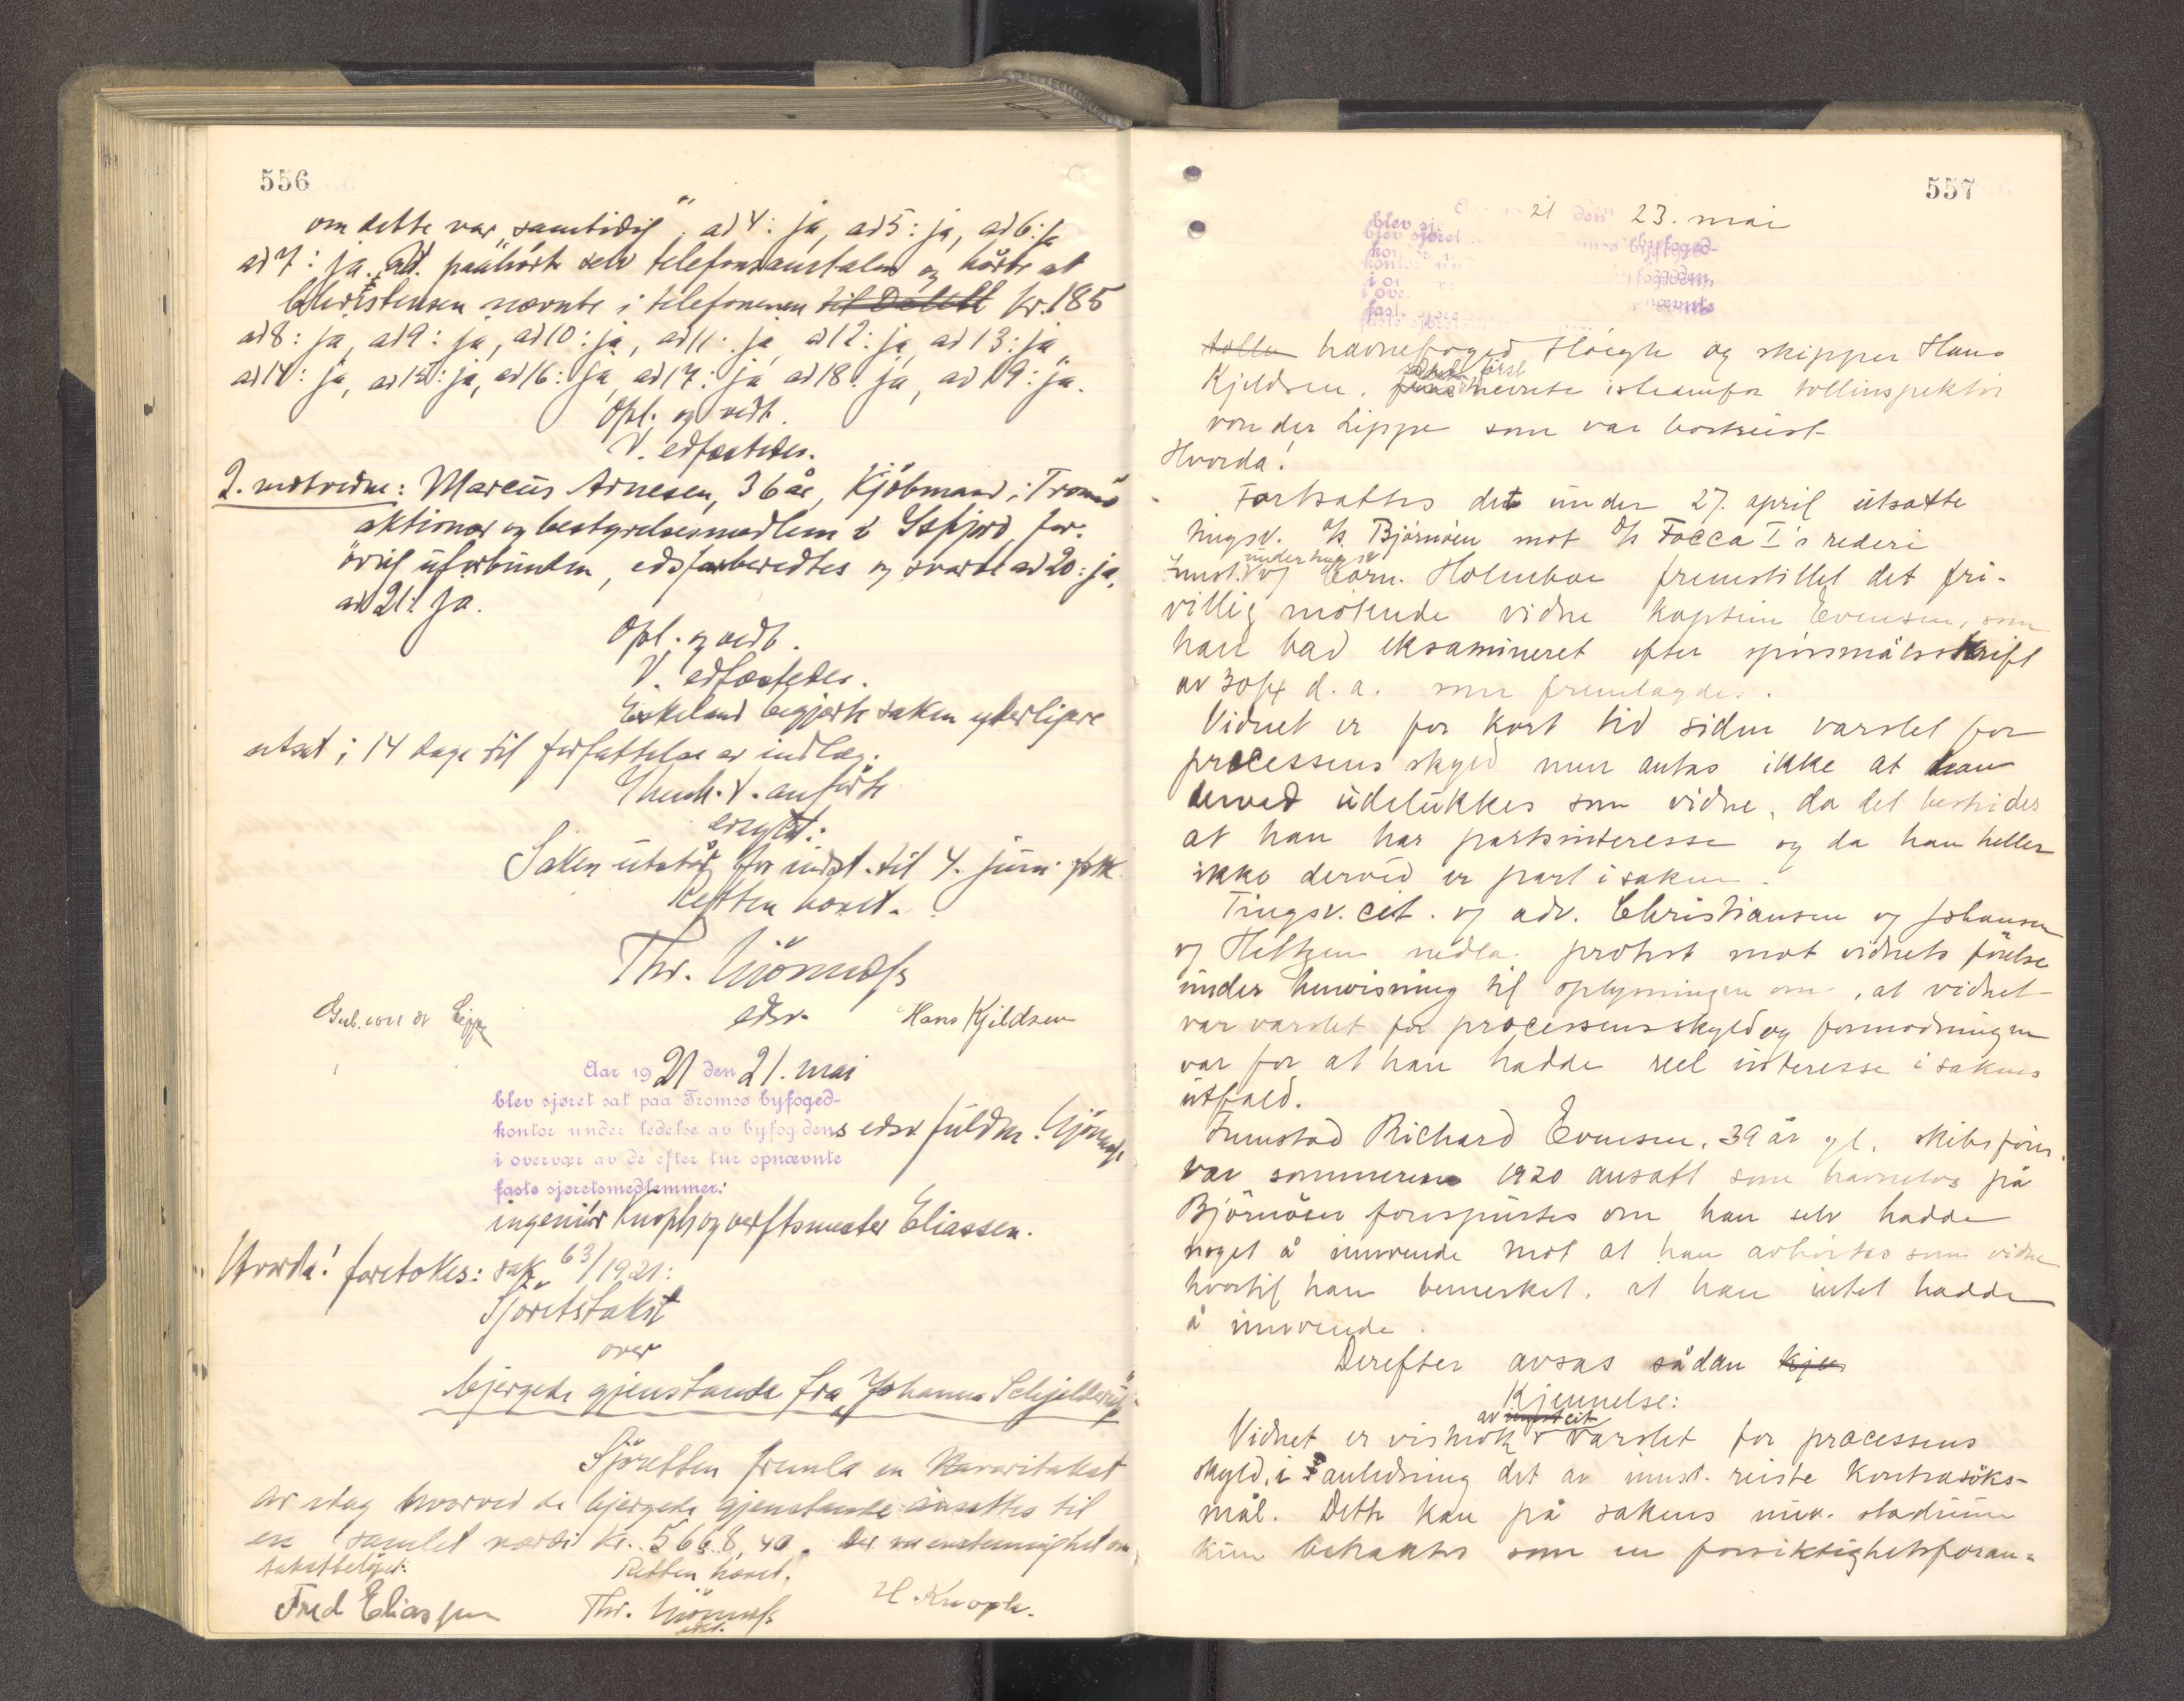 556
om dette var "samtidig". ad 4: ja, ad 5: ja, ad 6: ja
ad 7: ja. Vd. paahørte selv telefonsamtalen og hørte at
Christensen nævnte i telefonen til kr. 185
ad 8: ja, ad 9: ja, ad 10: ja, ad 11: ja, ad 12: ja, ad 13: ja,
ad 14: ja, ad 15: ja, ad 16: ja, ad 17: ja, ad 18: ja, ad 19: ja.
Opl. og vedt.
V. edfæstedes.
2. motvidne: Marcüs Arnesen, 36 år, Kjöbmand i Tromsö
aktionær og bestyrelsesmedlem i Isfjord, for-
övrig üforbunden, edsforberedtes og svarte ad 20: ja,
ad 21: ja.
Opl. og vedt.
V. edfæstedes.
Eskeland begjærte saken yderligere
utsat i 14 dage til forfattelse av indlæg.
V. anförte
avsgt:
Saken utstår for indst. til 4. jüni
Retten hævet.
Thr.
edsv.
Hans Kjeldsen
Aar 1921 den 21. mai
blev sjøret sat paa Tromsø byfoged-
kontor under ledelse av byfogdens edsv. füldm.
i overvær av de efter tur opnævnte
faste sjøretsmedlemmer:
ingeniör Knoph og verftsmester Eliassen.
Hvorda! foretokes: sak 63/1921:
Sjøretstakst
over
bjergede gjenstande fra "Johanna Schjelderüp".
Sjöretten fremla en Havaritakst
av idag hvorved de bjergede gjenstande ansattes til
en samlet værdi kr. 5668,40. Der var enstemmighet om
takstbelöpet.
Retten hævet.
Fred Eliassen
Thr.
edsv.
H Knoph.
557
21 den 23. mai
blev sjøret byfoged-
kontor
i over
faste nævnte
tolle havnefoged Höegh og skipper Hans
Kjeldsen. först nevnte istedenfor tollinspektör
von der Lippe som var bortreist
Hvorda!
Fortsattes det ünder 27. april ütsatte
tingsv. A/S Björnöen mot D/S Focca I's rederi
ünder tingsv.
Innst. og Corn. Holmboe fremstillet det fri-
villig mötende vidne kaptein Evensen, som
han bad eksamineret efter spörsmålsskrift
av 30/4 d.a. som fremlagdes.
Vidnet er for kort tid siden varslet for
processens skyld men antas ikke at han
derved üdelükkes som vidne, da det bestrides
at han har partsinteresse og da han heller
ikke derved er part i saken.
Tingsv. cit. og adv. Christiansen og Johansen
og Heltzen nedla protest mot vidnets förelse
ünder henvisning til oplysningen om, at vidnet
var varslet for processens skyld og formodningen
var for at han hadde reel interesse i sakens
ütfald.
Fremstod Richard Evensen, 39 år gl. skibsförer.
var sommeren 1920 ansatt som havnelos på
Björnöen forespürtes om han selv hadde
noget å innvende mot at han avhörtes som vidne
hvortil han bemerket, at han intet hadde
å innvende.
Derefter avsas sådan kjen
Kjennelse:
av cit.
Vidnet er vistnok varslet for processens
skyld, i anledning det av innst. reiste kontrasöks-
mål. Dette kan på sakens nuv. stadiüm
kün betraktes som en forsiktighetsforan-